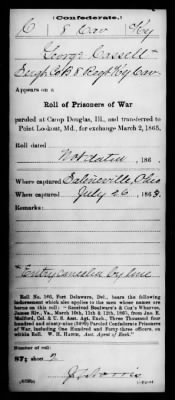 (Confederate.)
C 8 Cav Ky
George Cassell
Sergt Co B 8 Regt Ky Cav.
Appears on a
Roll of Prisoners of War
paroled at Camp Douglas, Ill., and transferred to
Point Lookout, Md., for exchange March 2, 1865.
Roll dated
Not dated 186 .
Where captured Salineville, Ohio
When captured July 26, 1863.
Remarks:
Entry cancelled by line
Roll No. 186, Fort Delaware, Del., bears the following
indorsement which also applies to the men whose names are
borne on this roll: "Received Boulware's & Cox's Wharves,
James Riv., Va., March 10th, 11th & 12th, 1865, from Jno. E.
Mulford, Col. & U. S. Asst. Agt. Exch., Three Thousand four
hundred and ninety-nine (3499) Paroled Confederate Prisoners
of War, including One Hundred and Forty three officers, as
within Roll. W. H. Hatch, Asst. Agent of Exch."
Number of roll:
sheet 2